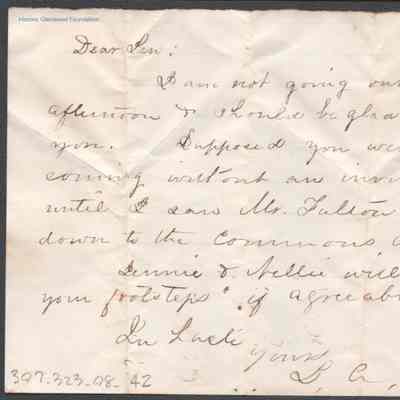 Historic Glenwood Foundation
Dear Sen:
I am not going out
afternoon & should be gla
you. Supposed you wer
coming without an invi
until I saw Mr. Fulton
down to the Commons
Jennie & Nellie will
your footsteps" if agreeab
In haste
Yours
307-323-08-42